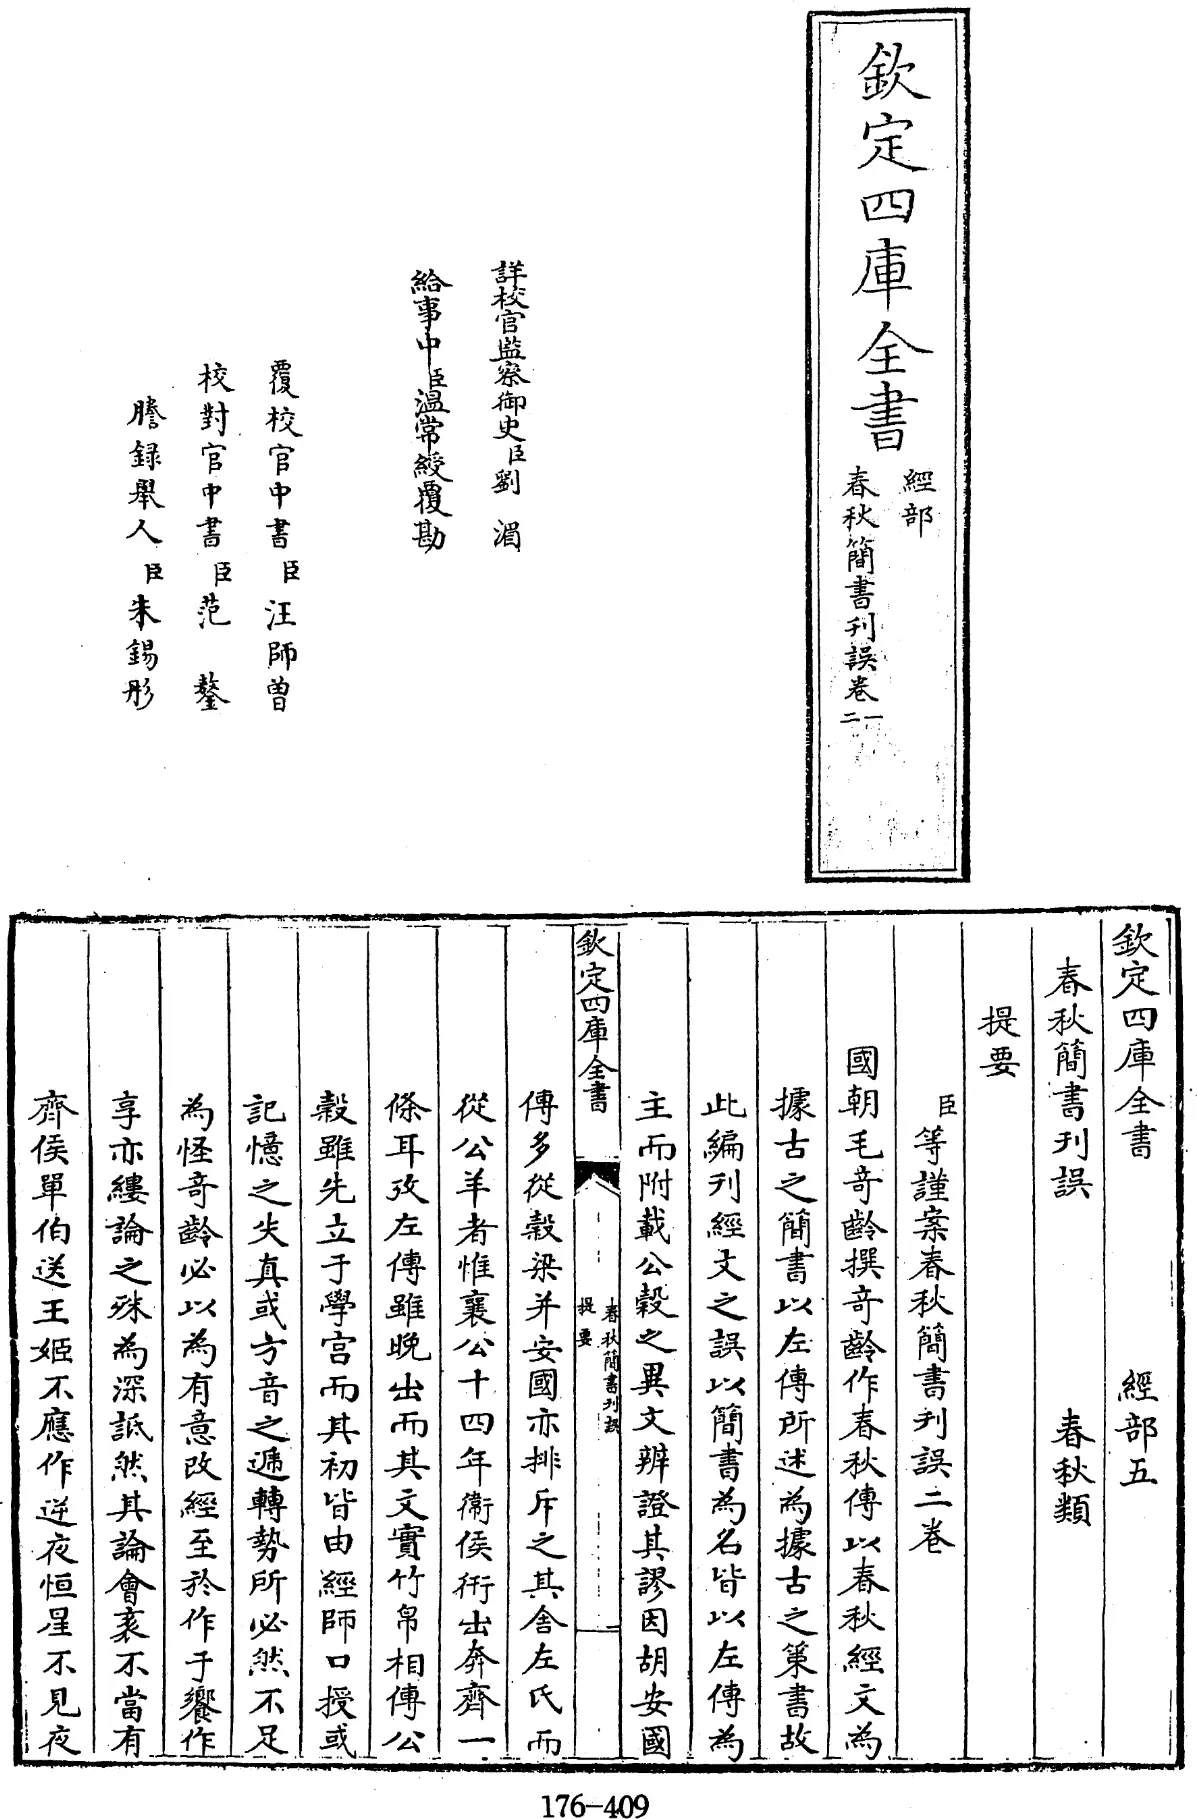 欽定四庫全書
經部
春秋簡書刊誤卷一二
詳校官監察御史臣劉湄
給事中臣溫常綬覆勘
覆校官中書臣汪師曾
校對官中書臣范鏊
謄錄舉人臣朱錫彤
欽定四庫全書 經部五
春秋簡書刊誤 春秋類
提要
臣等謹案春秋簡書刊誤二卷
國朝毛奇齡撰奇齡作春秋傳以春秋經文為
據古之簡書以左傳所述為據古之策書故
此編刊經文之誤以簡書為名皆以左傳為
主而附載公穀之異文辨證其謬因胡安國
欽定四庫全書
春秋簡書刊誤
提要
傳多從穀梁并安國亦排斥之其舍左氏而
從公羊者惟襄公十四年衛侯衎出奔齊一
條耳攷左傳雖晚出而其文實竹帛相傳公
穀雖先立于學宫而其初皆由經師口授或
記憶之失真或方音之遞轉勢所必然不足
為怪奇齡必以為有意改經至於作于饗作
享亦縷論之殊為深詆然其論會袲不當有
齊侯單伯送王姬不應作逆夜恒星不見夜
176-409